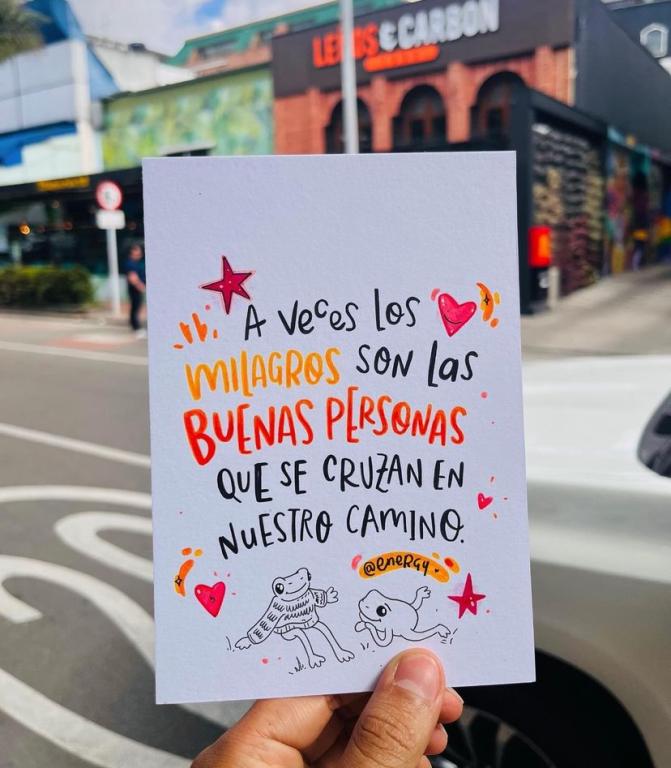 LEÑOS & CARBON
A veces los
MILAGROS SON las
BUENAS PERSONAS
QUE SE CRUZAN EN
NUESTRO CAMINO.
@eneRGy